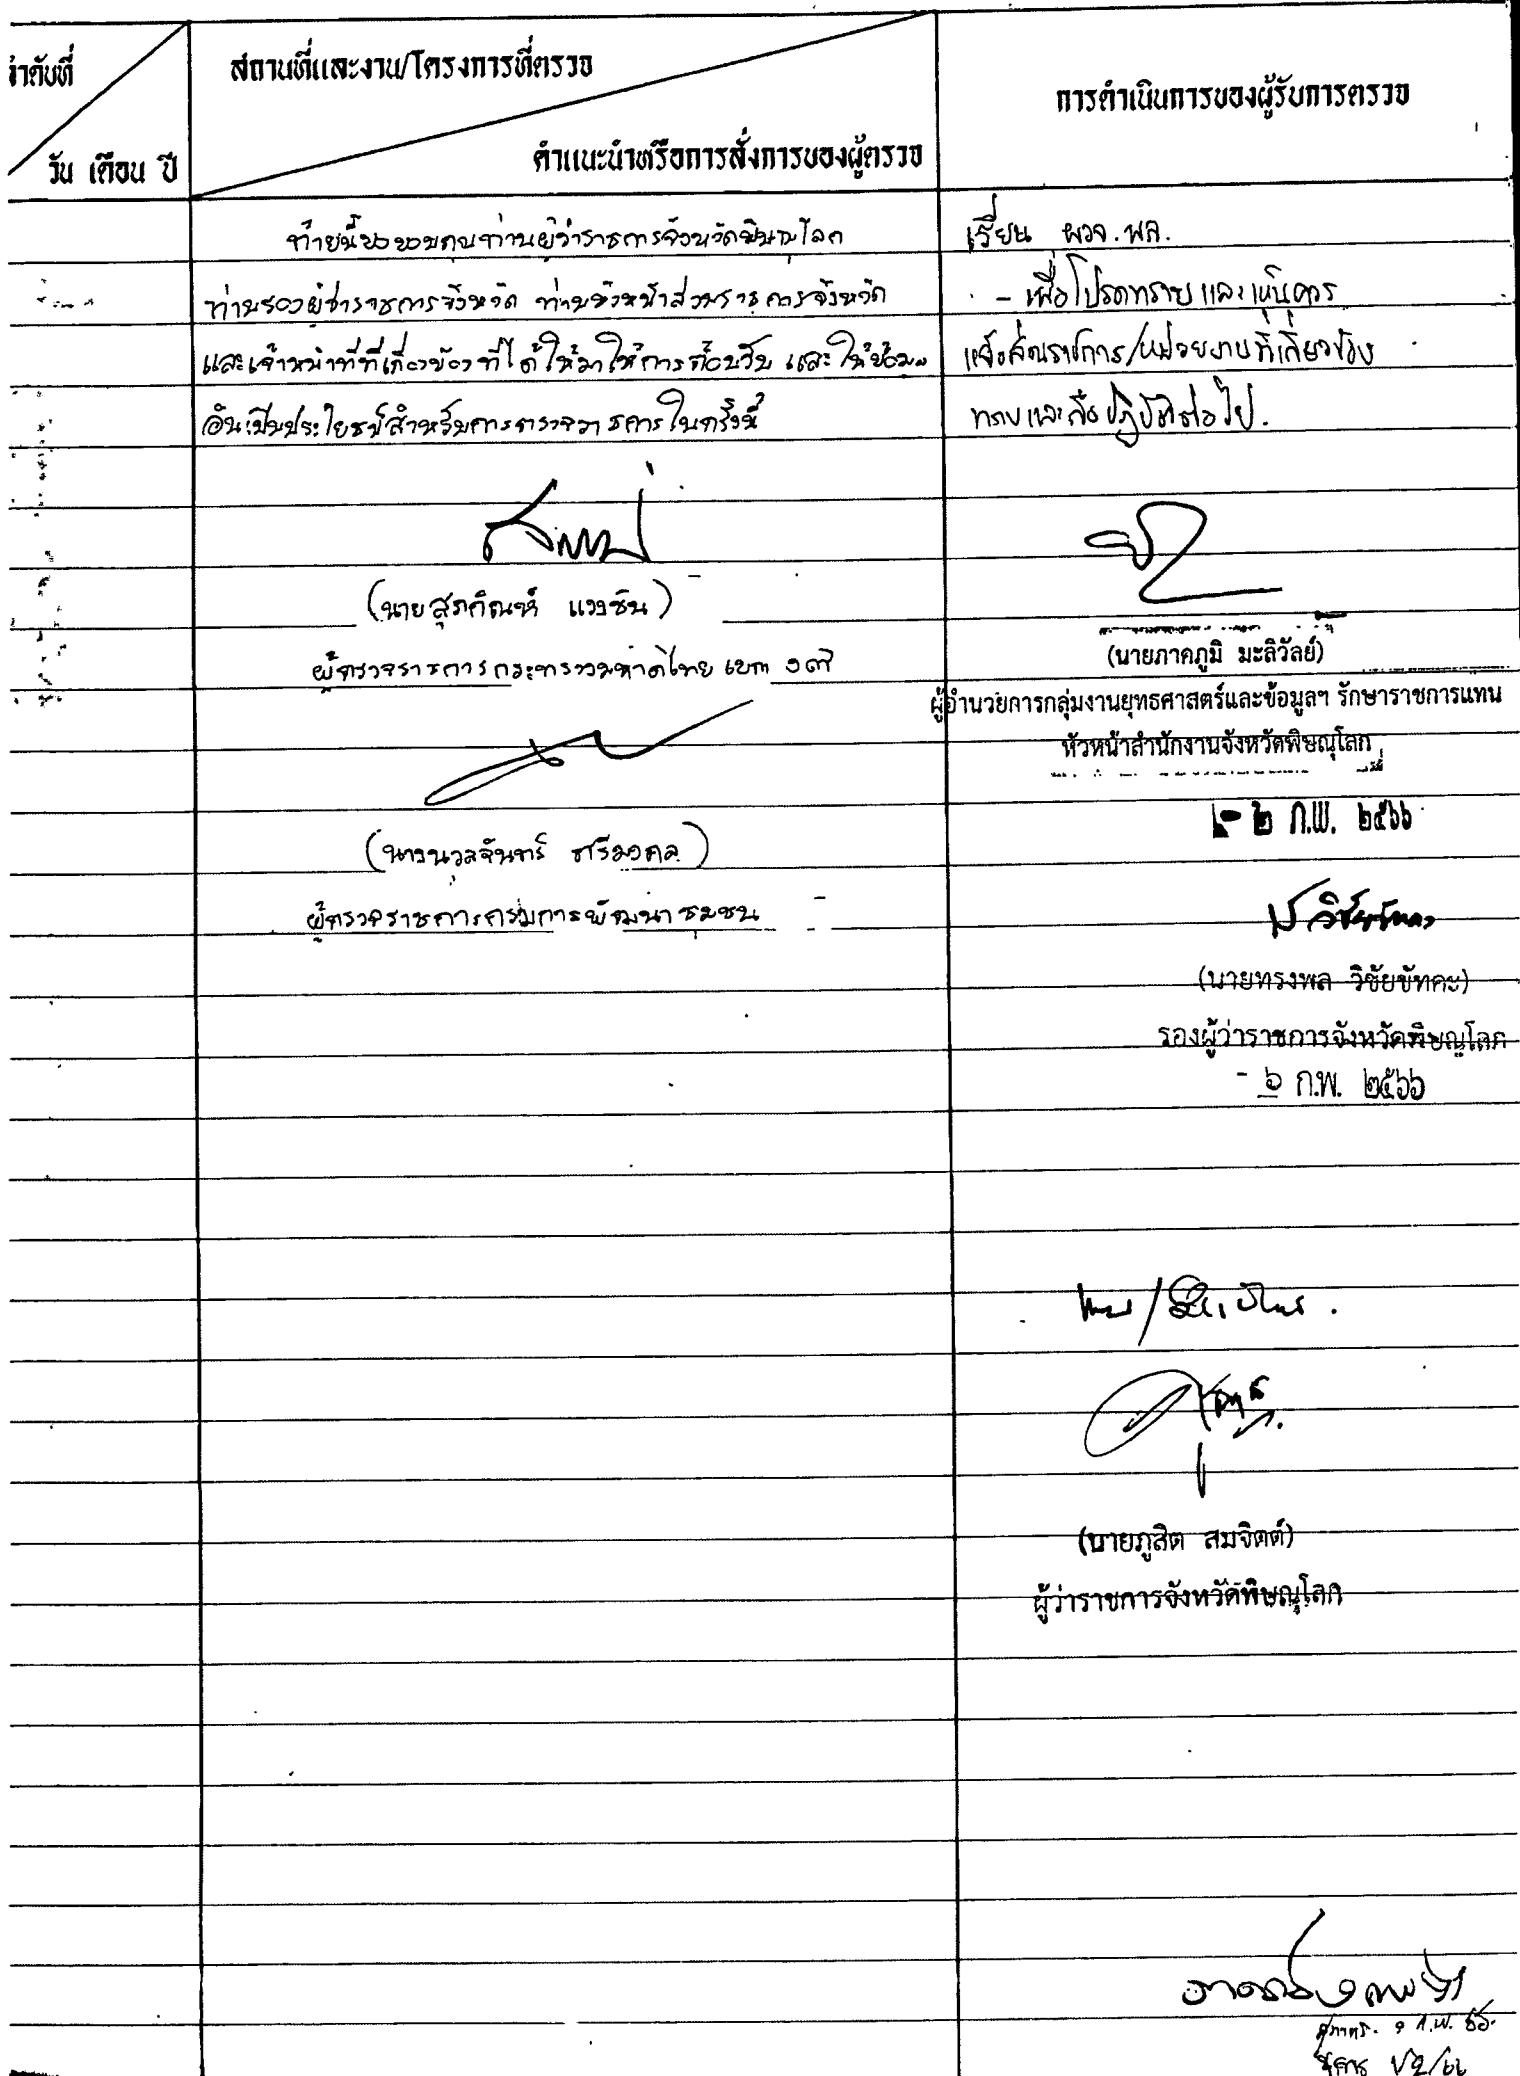 ลำดับที่
วัน เดือน ปี
สถานที่และงาน/โครงการที่ตรวจ
คำแนะนำหรือการสั่งการของผู้ตรวจ
การดำเนินการของผู้รับการตรวจ
ท้ายนี้ขอขอบคุณท่านผู้ว่าราชการจังหวัดพิษณุโลก
ท่านรองผู้ว่าราชการจังหวัด ท่านหัวหน้าส่วนราชการจังหวัด
และเจ้าหน้าที่ที่เกี่ยวข้อง ที่ได้ให้มาให้การต้อนรับ และให้ข้อมูล
อันเป็นประโยชน์สำหรับการตรวจราชการในครั้งนี้
(นายสุรภัณฑ์ แวงชิน)
ผู้ตรวจราชการกระทรวงมหาดไทย เขต ๑๗
(นางนวลจันทร์ ศรีมงคล)
ผู้ตรวจราชการกรมการพัฒนาชุมชน
เรียน ผวจ.พล.
- เพื่อโปรดทราบ และเห็นควร
แจ้งส่วนราชการ/หน่วยงานที่เกี่ยวข้อง
ทราบและถือปฏิบัติต่อไป.
(นายภาคภูมิ มะลิวัลย์)
ผู้อำนวยการกลุ่มงานยุทธศาสตร์และข้อมูลฯ รักษาราชการแทน
หัวหน้าสำนักงานจังหวัดพิษณุโลก
- ๒ ก.พ. ๒๕๖๖
(นายทรงพล วิชัยขัทคะ)
รองผู้ว่าราชการจังหวัดพิษณุโลก
- ๖ ก.พ. ๒๕๖๖
(นายภูสิต สมจิตต์)
ผู้ว่าราชการจังหวัดพิษณุโลก